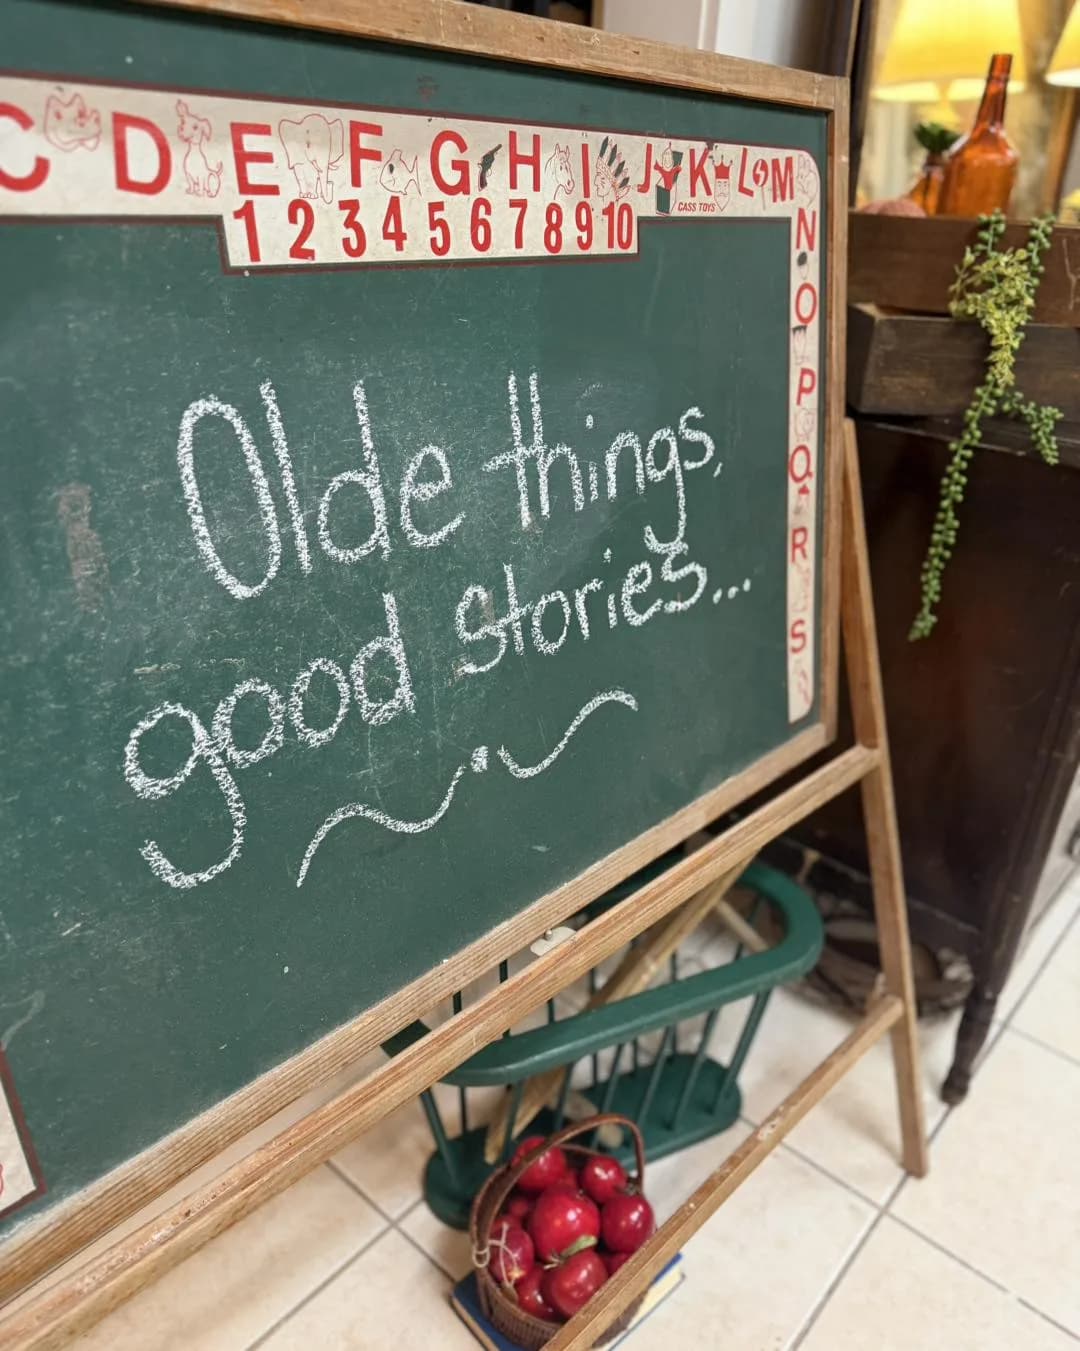 C D E F G H I J K L M
1 2 3 4 5 6 7 8 9 10
CASS TOYS
N
O
P
Q
R
S
Olde things,
good stories...